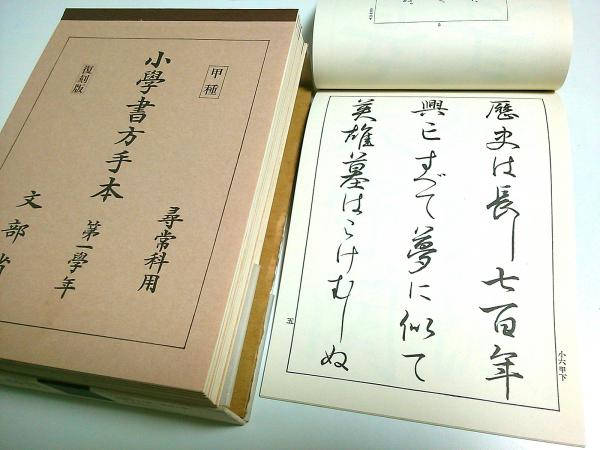 甲種
小學書方手本
復刻版
尋常科用
第一學年
文部省
歷史は長し七百年
興亡すべて夢に似て
英雄墓はこけむしぬ
小六甲下
五